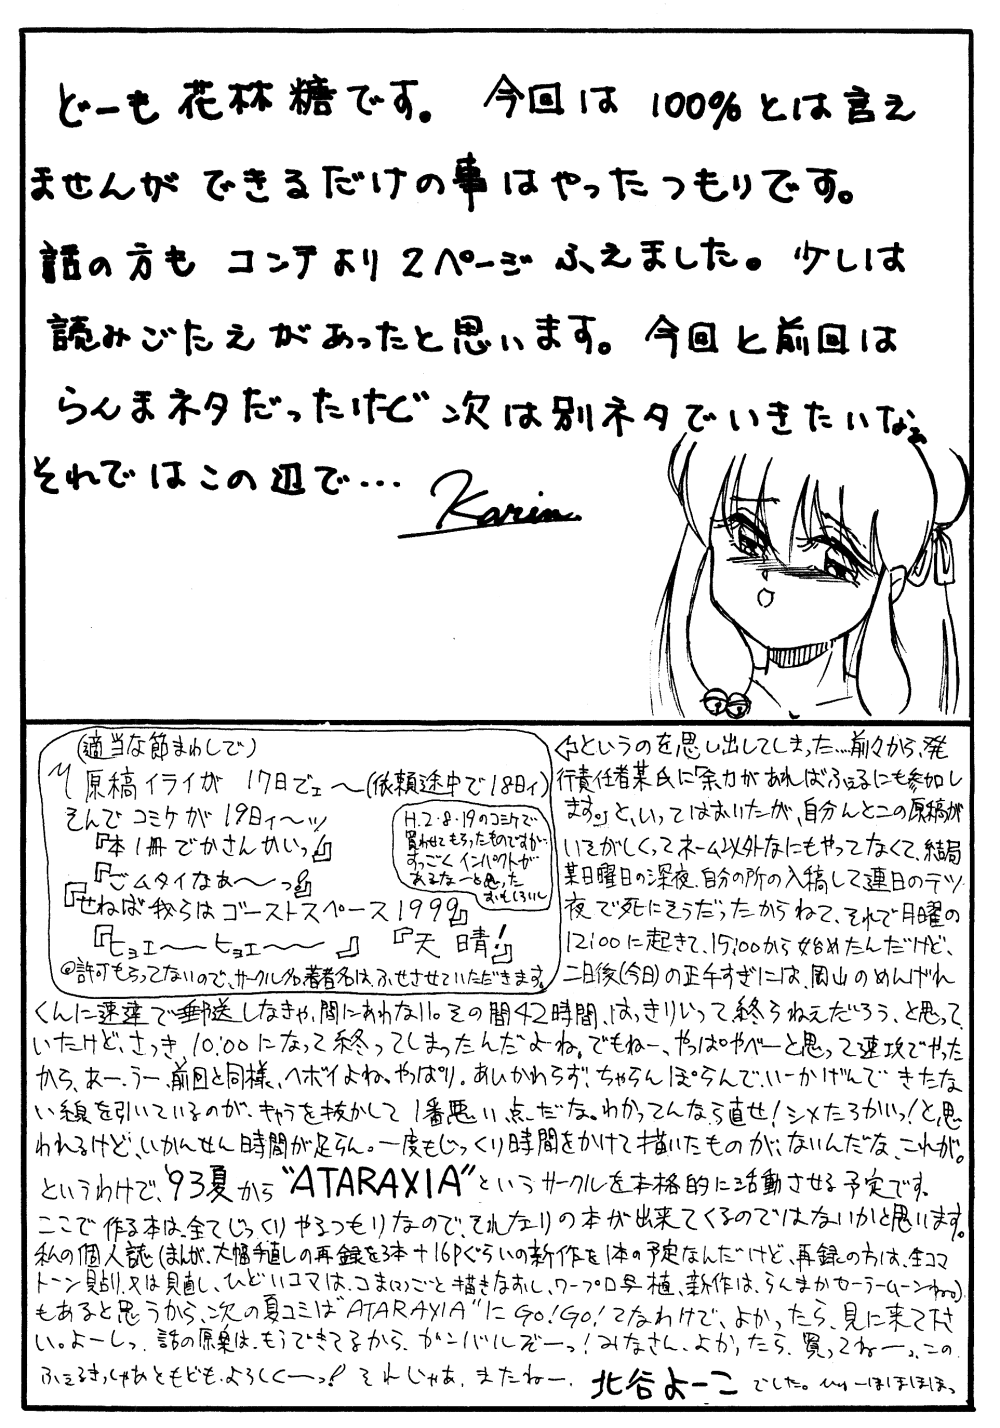 どーも 花林糖です。 今回は 100%とは言え
ませんが できるだけの事はやったつもりです。
話の方も コンテより 2ページ ふえました。少しは
読みごたえがあったと思います。今回と前回は
らんまネタだったけど 次は別ネタでいきたいなぁ
それではこの辺で…
Karin
(適当な節まわしで)
原稿イライが 17日でェ〜(依頼途中で18日ィ)
そんで コミケが 19日ィ〜ッ
『本1冊でかさんかいっ』
『ごムタイなあ〜っ!』
『せねば我らはゴーストスペース1999』
『ヒョエ〜〜 ヒョエ〜〜 』 『天晴!』
H.2・8・19のコミケで
買わせてもらったものですが…
すっごく インパクトが
あるなーと思った
おもしろいし
◎許可もらってないので、サークル名著者名は、ふせさせていただきます。
⇦というのを思い出してしまった…前々から、発
行責任者某氏に「余力があればふぇるにも参加し
ます。」と、いってはおいたが、自分んとこの原稿が
いそがしくってネーム以外なにもやってなくて、結局
某日曜日の深夜、自分の所の入稿して連日のテツ
夜で死にそうだったからねて、それで月曜の
12:00に起きて、15:00から始めたんだけど、
二日後(今日)の正午すぎには、岡山のめんげれ
くんに速達で郵送しなきゃ、間にあわない。その間42時間、はっきりいって終らねえだろう、と思って
いたけど、さっき、10:00になって終ってしまったんだよね。でもねー、やっぱやべーと思って速攻でやった
から、あー、うー、前回と同様、ヘボイよね。やっぱり。あいかわらず、ちゃらんぽらんで、いーかげんで きたな
い線を引いているのが、キャラを抜かして 1番悪い点だな。わかってんなら直せ!シメたろかいっ!と、思
われるけど、いかんせん時間が足らん。一度もじっくり時間をかけて描いたものが、ないんだな、これが。
というわけで、'93夏から “ATARAXIA”というサークルを本格的に活動させる予定です。
ここで作る本は、全てじっくりやるつもりなので、それなりの本が出来てくるのではないかと思います。
私の個人誌(まんが、大幅手直しの再録を3本+16Pぐらいの新作を1本の予定なんだけど、再録の方は、全コマ
トーン見貼り、又は見直し、ひどいコマは、コマまるごと描きなおし、ワープロ写植、新作は、らんまかセーラームーンねっ。)
もあると思うから、次の夏コミは“ATARAXIA”にGO!GO!てなわけで、よかったら、見に来て下さ
い。よーしっ、話の原案は、もうできてるから、ガンバルぞーっ!みなさん、よかったら、買ってねーっ、この
ふぇるきっしゃあともども、よろしくーっ! それじゃあ、またねー、 北谷よーこ でした。 ーほほほほっ